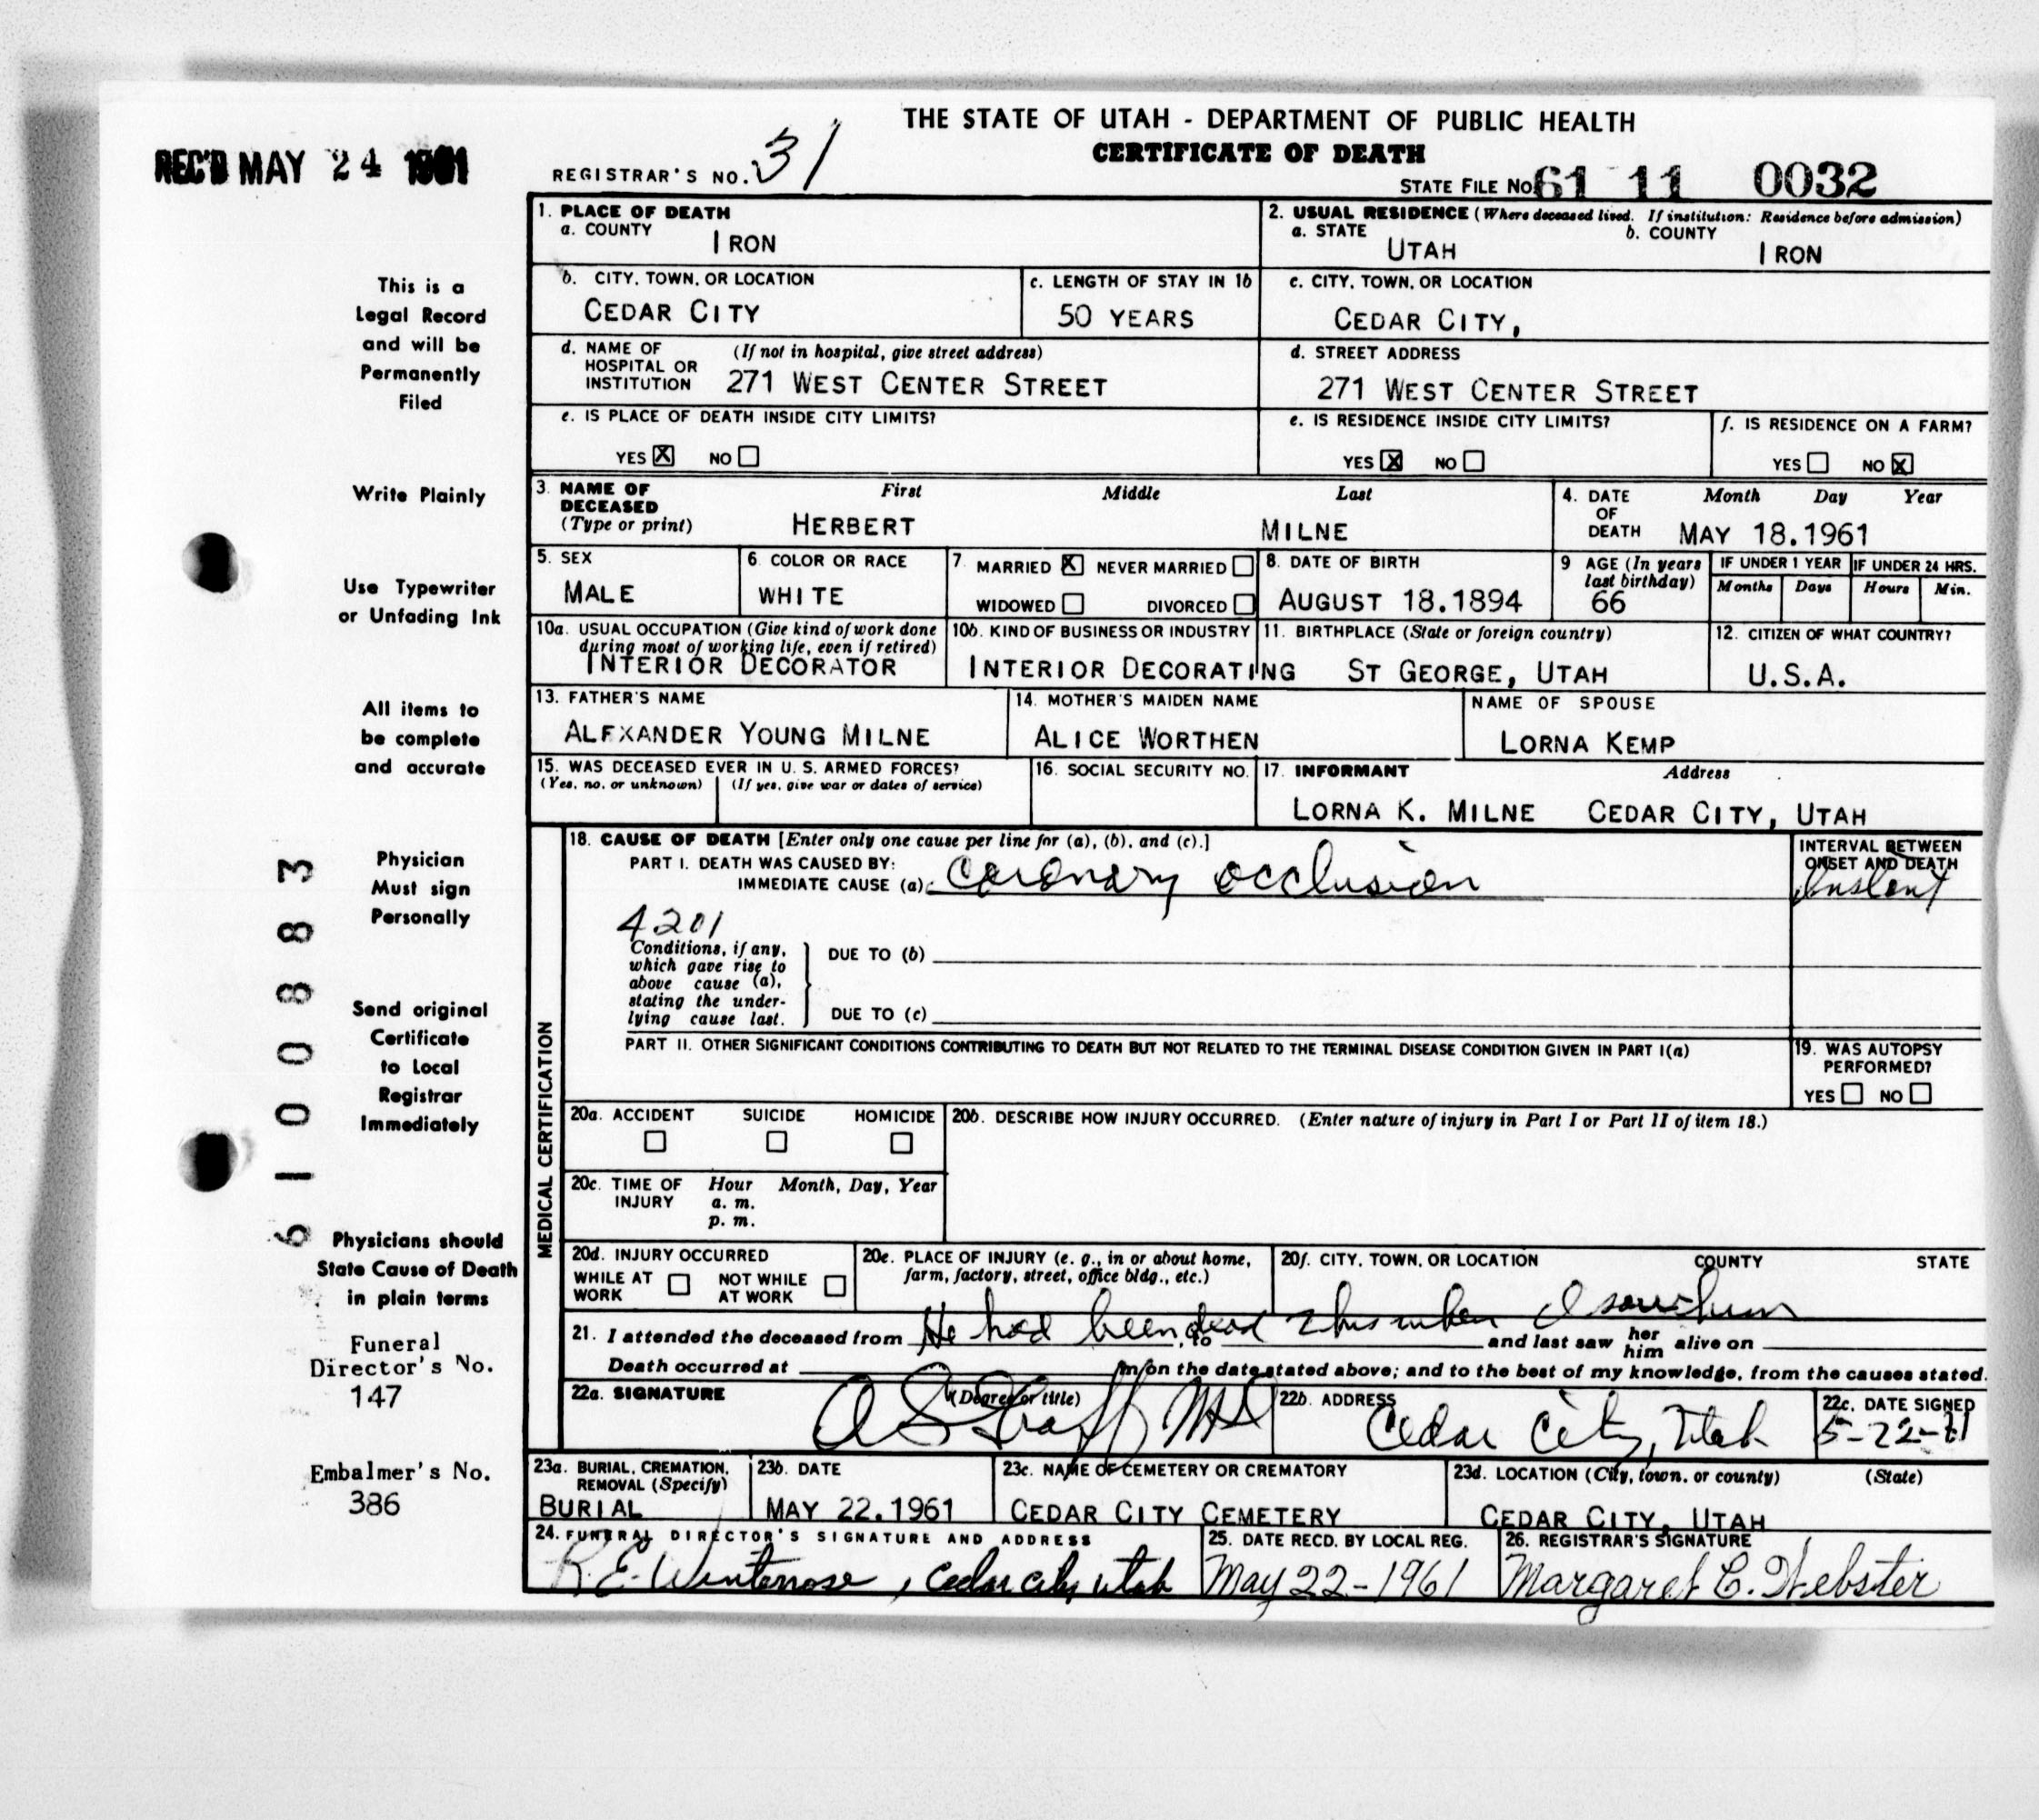 THE STATE OF UTAH - DEPARTMENT OF PUBLIC HEALTH
CERTIFICATE OF DEATH
REC'D MAY 24 1961
REGISTRAR'S NO. 31
STATE FILE NO. 61 11 0032
1. PLACE OF DEATH
a. COUNTY IRON
2. USUAL RESIDENCE (Where deceased lived. If institution: Residence before admission)
a. STATE UTAH b. COUNTY IRON
b. CITY, TOWN, OR LOCATION
CEDAR CITY
c. LENGTH OF STAY IN 1b
50 YEARS
c. CITY, TOWN, OR LOCATION
CEDAR CITY,
d. NAME OF HOSPITAL OR INSTITUTION (If not in hospital, give street address)
271 WEST CENTER STREET
d. STREET ADDRESS
271 WEST CENTER STREET
e. IS PLACE OF DEATH INSIDE CITY LIMITS?
YES X NO
e. IS RESIDENCE INSIDE CITY LIMITS?
YES X NO
f. IS RESIDENCE ON A FARM?
YES NO X
3. NAME OF DECEASED (Type or print)
First Middle Last
HERBERT MILNE
4. DATE OF DEATH Month Day Year
MAY 18.1961
5. SEX
MALE
6. COLOR OR RACE
WHITE
7. MARRIED X NEVER MARRIED
WIDOWED DIVORCED
8. DATE OF BIRTH
AUGUST 18.1894
9 AGE (In years last birthday)
66
IF UNDER 1 YEAR
Months Days
IF UNDER 24 HRS.
Hours Min.
10a. USUAL OCCUPATION (Give kind of work done during most of working life, even if retired)
INTERIOR DECORATOR
10b. KIND OF BUSINESS OR INDUSTRY
INTERIOR DECORATING
11. BIRTHPLACE (State or foreign country)
ST GEORGE, UTAH
12. CITIZEN OF WHAT COUNTRY?
U.S.A.
13. FATHER'S NAME
ALEXANDER YOUNG MILNE
14. MOTHER'S MAIDEN NAME
ALICE WORTHEN
NAME OF SPOUSE
LORNA KEMP
15. WAS DECEASED EVER IN U. S. ARMED FORCES?
(Yes, no, or unknown) (If yes, give war or dates of service)
16. SOCIAL SECURITY NO.
17. INFORMANT Address
LORNA K. MILNE CEDAR CITY, UTAH
MEDICAL CERTIFICATION
18. CAUSE OF DEATH [Enter only one cause per line for (a), (b), and (c).]
PART I. DEATH WAS CAUSED BY:
IMMEDIATE CAUSE (a) Coronary occlusion
INTERVAL BETWEEN ONSET AND DEATH
Instant
4201
Conditions, if any, which gave rise to above cause (a), stating the under-lying cause last.
DUE TO (b)
DUE TO (c)
PART II. OTHER SIGNIFICANT CONDITIONS CONTRIBUTING TO DEATH BUT NOT RELATED TO THE TERMINAL DISEASE CONDITION GIVEN IN PART I(a)
19. WAS AUTOPSY PERFORMED?
YES NO
20a. ACCIDENT SUICIDE HOMICIDE
20b. DESCRIBE HOW INJURY OCCURRED. (Enter nature of injury in Part I or Part II of item 18.)
20c. TIME OF INJURY Hour Month, Day, Year
a. m.
p. m.
20d. INJURY OCCURRED
WHILE AT WORK NOT WHILE AT WORK
20e. PLACE OF INJURY (e. g., in or about home, farm, factory, street, office bldg., etc.)
20f. CITY, TOWN, OR LOCATION COUNTY STATE
He had been dead when I saw him
21. I attended the deceased from , to and last saw her him alive on
Death occurred at m on the date stated above; and to the best of my knowledge, from the causes stated.
22a. SIGNATURE (Degree or title)
22b. ADDRESS
Cedar City, Utah
22c. DATE SIGNED
5-22-61
23a. BURIAL, CREMATION, REMOVAL (Specify)
BURIAL
23b. DATE
MAY 22.1961
23c. NAME OF CEMETERY OR CREMATORY
CEDAR CITY CEMETERY
23d. LOCATION (City, town, or county) (State)
CEDAR CITY, UTAH
24. FUNERAL DIRECTOR'S SIGNATURE AND ADDRESS
Cedar City, Utah
25. DATE RECD. BY LOCAL REG.
May 22-1961
26. REGISTRAR'S SIGNATURE
Margaret C. Webster
This is a
Legal Record
and will be
Permanently
Filed
Write Plainly
Use Typewriter
or Unfading Ink
All items to
be complete
and accurate
Physician
Must sign
Personally
Send original
Certificate
to Local
Registrar
Immediately
Physicians should
State Cause of Death
in plain terms
Funeral
Director's No.
147
Embalmer's No.
386
6100883